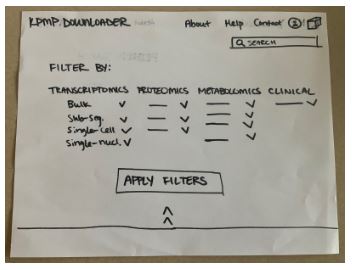 KPMP DOWNLOADER About Help Contact 2
SEARCH
FILTER BY:
TRANSCRIPTOMICS PROTEOMICS METABOLOMICS CLINICAL
Bulk
Sub-seg.
Single-cell
Single-nucl.
APPLY FILTERS